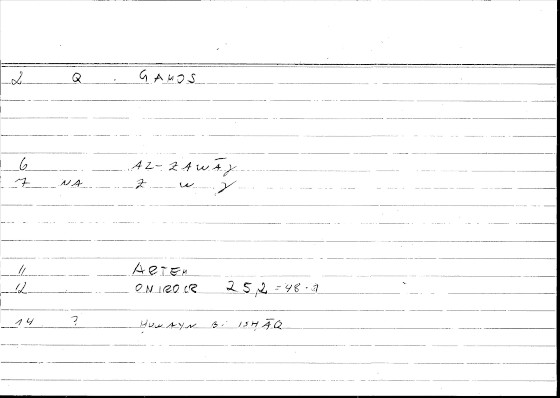 2 Q . GAMOS
6 AZ-ZAWĀY
7 NA Z W Y
11 ARTEM
12 ONIROCR 25,2 = 48.
14 ? ḤUNAYN B. ISḤĀQ